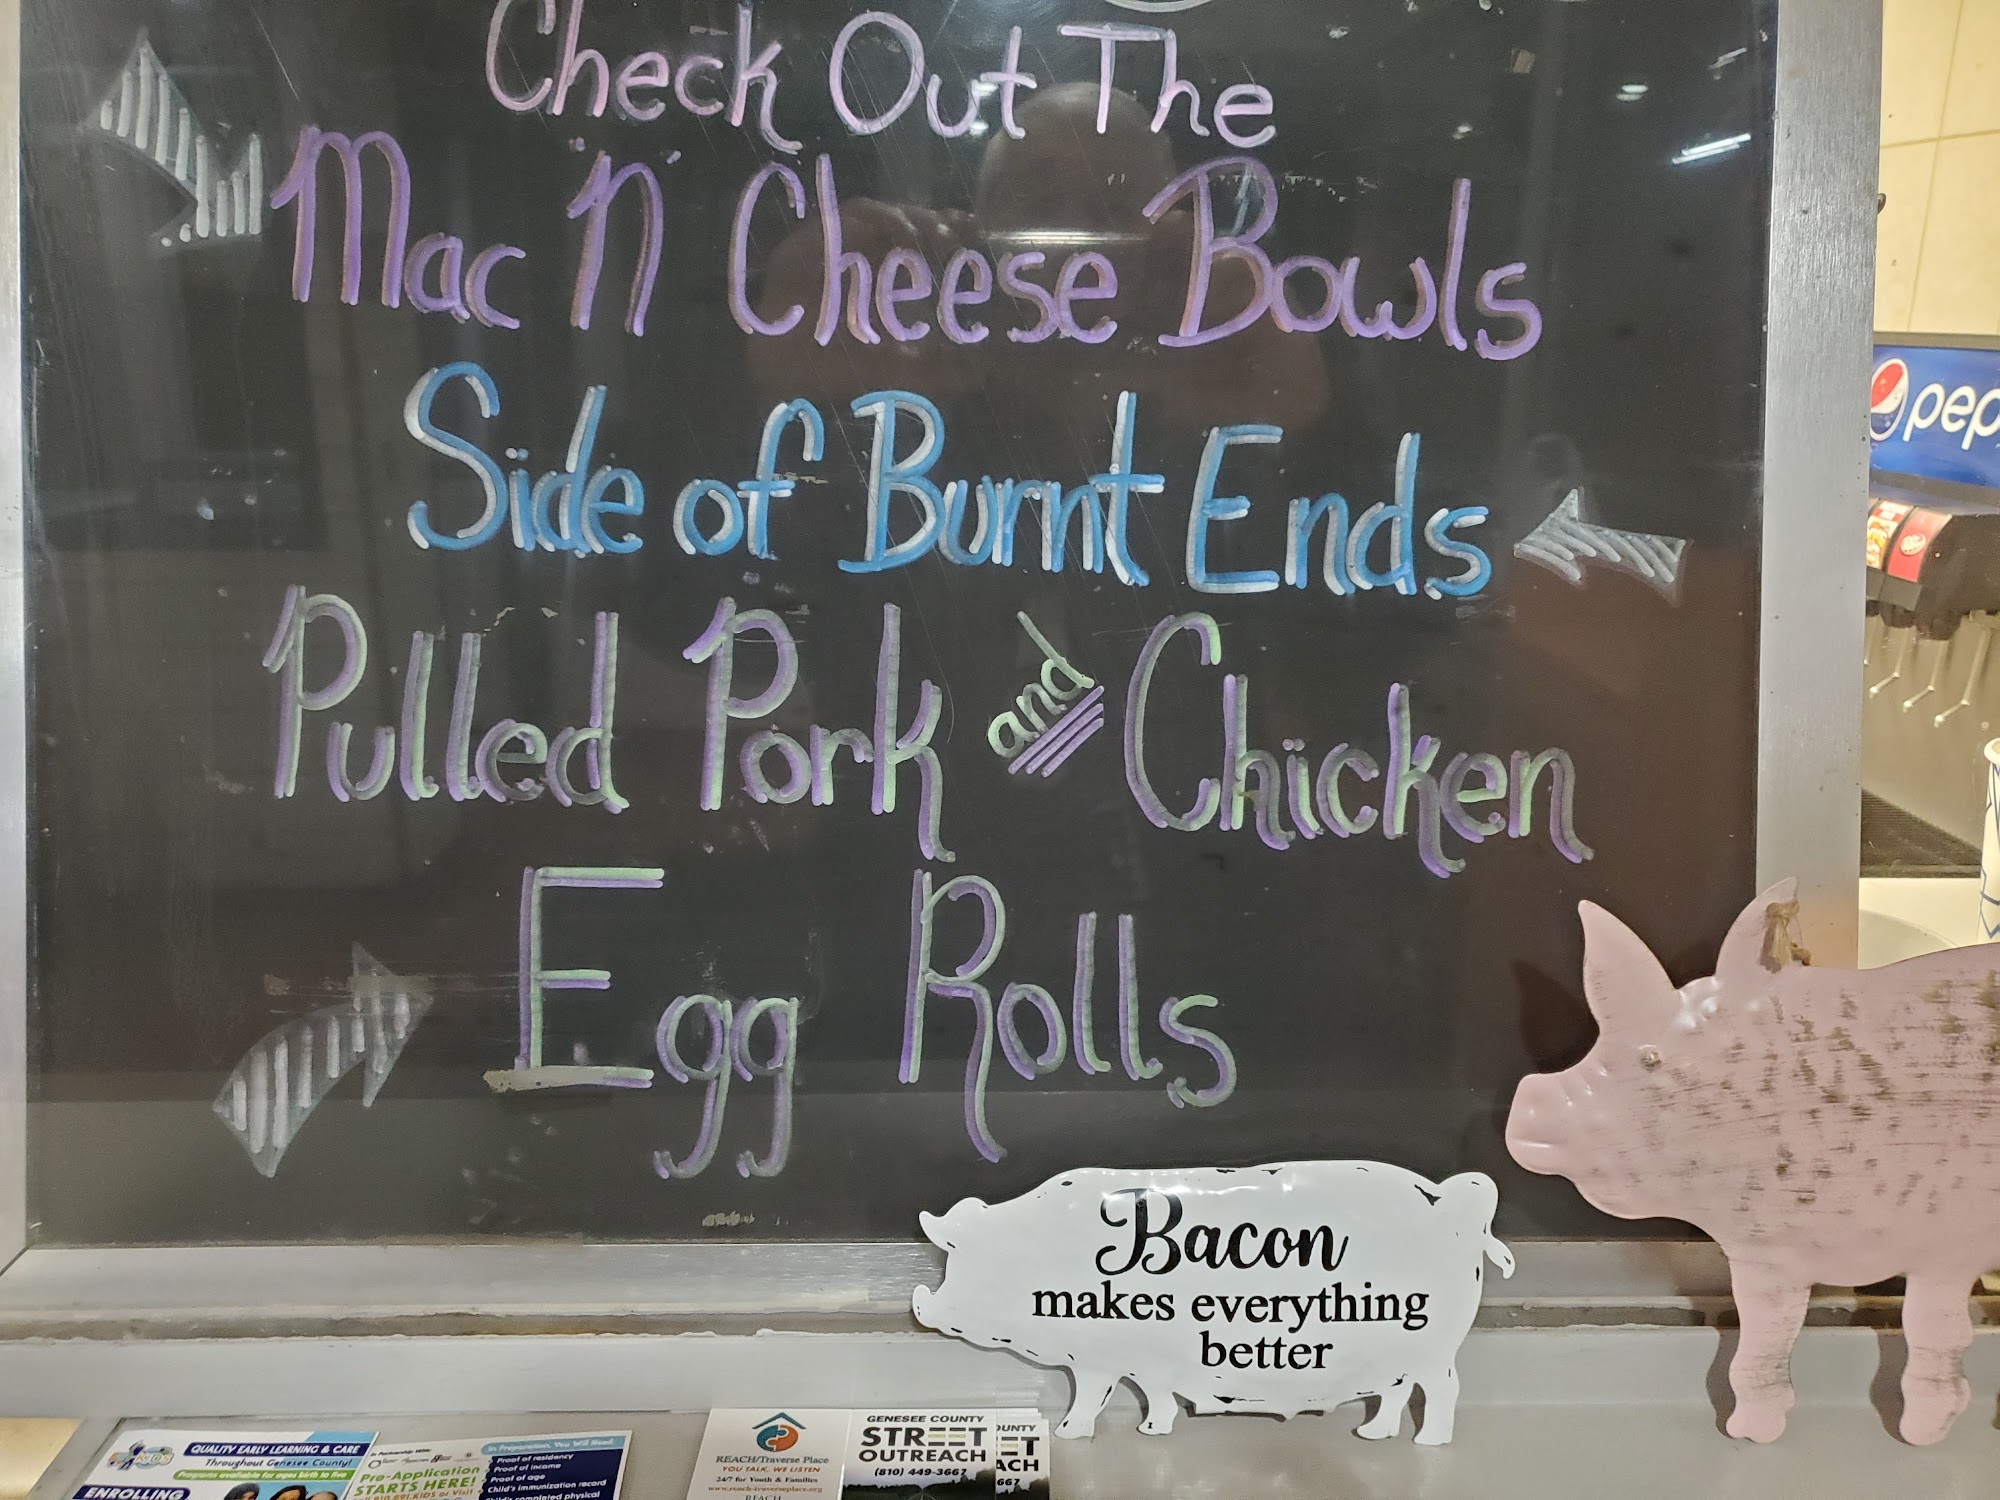 Check Out The
Mac N Cheese Bowls
Side of Burnt Ends
Pulled Pork and Chicken
Egg Rolls
pep
Bacon
makes everything
better
KIDS
QUALITY EARLY LEARNING & CARE
Throughout Genesee County!
Programs available for ages birth to five
ENROLLING
In Partnership With:
Pre-Application
STARTS HERE!
In Preparation, You Will Need:
Proof of residency
Proof of income
Proof of age
Child's immunization record
Child's completed physical
REACH/Traverse Place
YOU TALK, WE LISTEN
24/7 for Youth & Families
www.reach-traverseplace.org
REACH
GENESEE COUNTY
STREET
OUTREACH
(810) 449-3667
OUNTY
ET
ACH
667